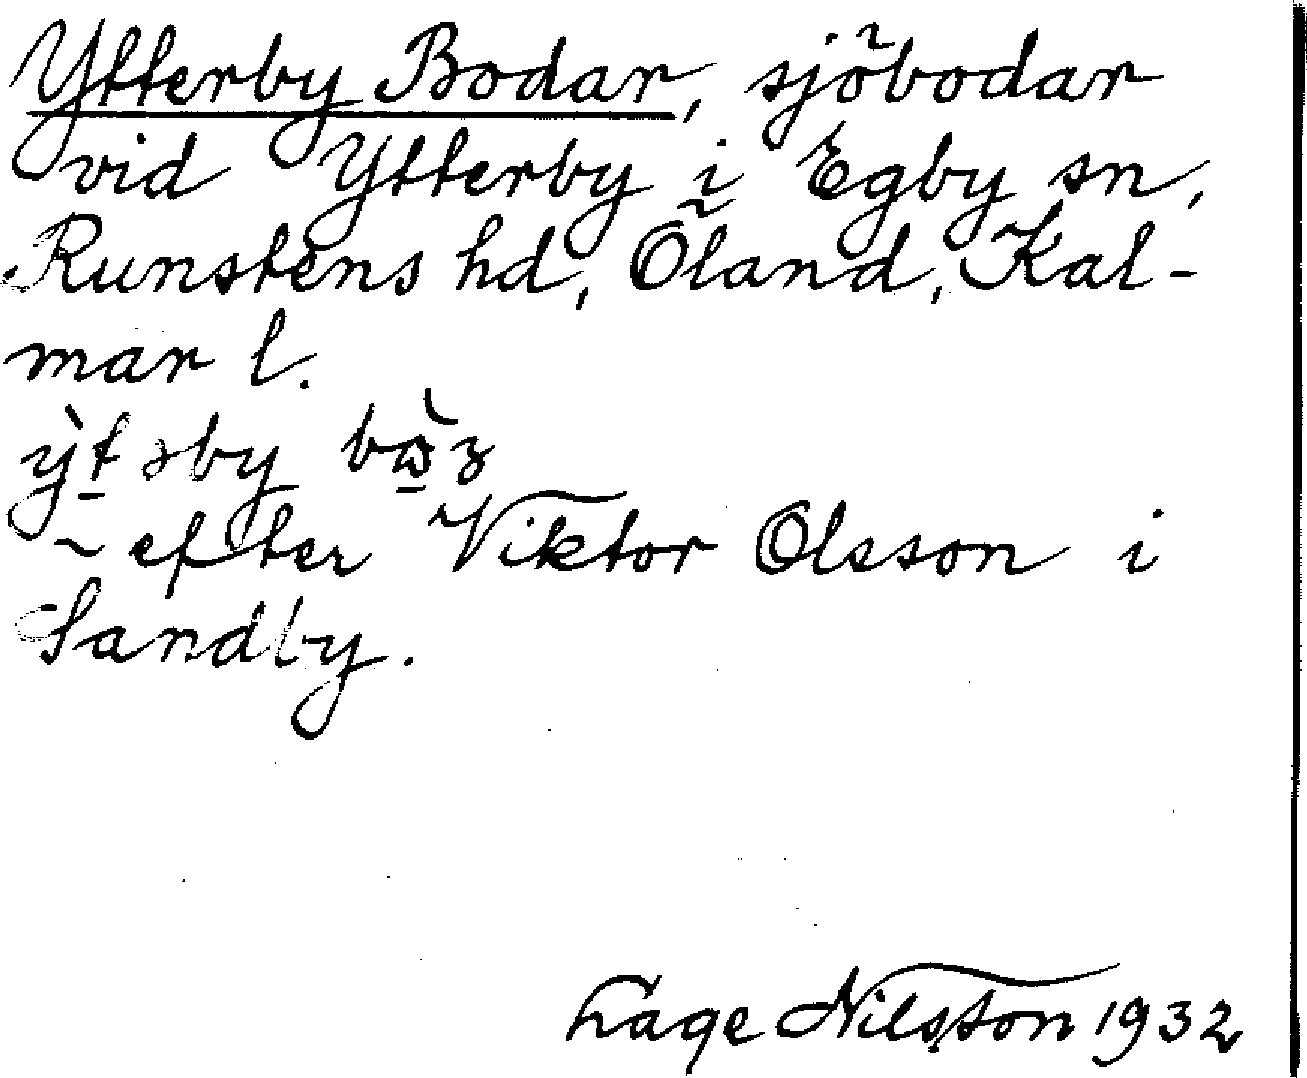 Ytterby Bodar, sjöbodar
vid Ytterby i Egby sn,
Runstens hd, Öland, Kal-
mar l.
ỳt̲əby
~ efter Viktor Olsson i
Sandby.
Lage Nilsson 1932